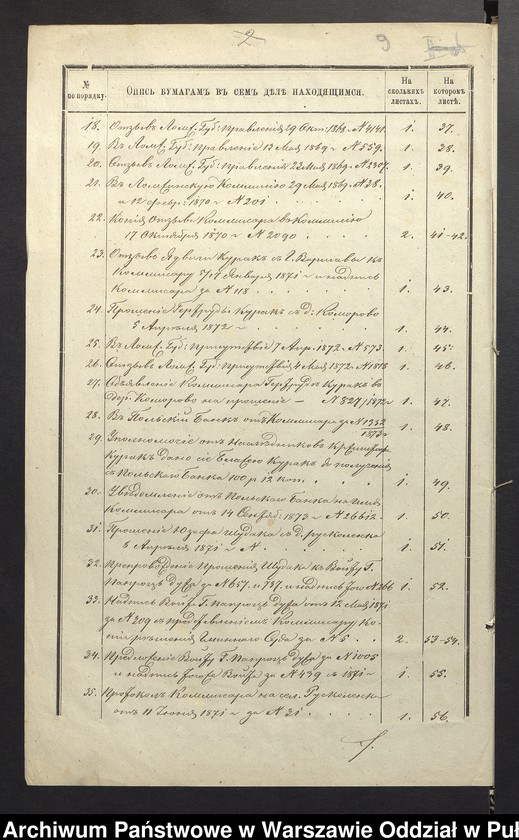 2
9
№ по порядку.
Опись бумагамъ въ семъ дѣлѣ находящимся.
На сколькихъ листахъ.
На которомъ листѣ.
18. Отзывъ Ломж. Губ: правленія 29 Окт: 1868. № 4141 1. 37.
19. Въ Ломж. Губ: правленіе 13 Мая 1869 г. № 559. 1. 38.
20. Отзывъ Ломж. Губ: правленія 23 Мая 1869. № 2307. 1. 39.
21. Въ Ломжинскую Коммисію 29 Мая 1869. № 38.
и 12 февр: 1870 г. № 201 1. 40.
22. Копія Отзыва Коммисара въ Коммисію
17 Октября 1870 г. № 2090 2. 41-42.
23. Отзывъ Куракъ съ Г. Варшавы къ
Коммисару Января 1871 г. и надпись
Коммисара за № 118 1. 43.
24. Прошеніе Гертруды Куракъ съ д: Коморово
5 Апрѣля 1872 г. 1. 44.
25. Въ Ломж. Губ: присутствіе 7 Апр. 1872. № 573. 1. 45.
26. Отзывъ Ломж. Губ: присутствія 4 Мая 1872. № 1818 1. 46.
27. Объявленіе Коммисара Гертрудѣ Куракъ въ
дер. Коморово на прошеніе — № 827/1872 г. 1. 47.
28. Въ Польскій Банкъ отъ Коммисара за № 1232/1873 г. 1. 48.
29. Уполномочіе отъ Наслѣдниковъ
Куракъ дано сіе Куракъ до полученія
съ Польскаго Банка 100 р. 12 коп. 1. 49.
30. Увѣдомленіе отъ Польскаго Банка на имя
Коммисара отъ 14 Сентяб: 1873 г. № 26612. 1. 50.
31. Прошеніе Юзефа Шудака съ д. Русколенка
5 Апрѣля 1871 г. № 1. 51.
32. Препровожденіе Прошенія Шудака къ Войту Г.
за № 657. и 737. и надпись того № 266 1. 52.
33. Надпись Войт. Г. отъ 12 Мая 1871
за № 209 съ представленіемъ Коммисару Ко-
піи рѣшенія Гминнаго Суда за № 5 2. 53-54.
34. Предложеніе Войту Г. за № 1005
и надпись того Войта за № 439 съ 1871 г. 1. 55.
35. Протоколъ Коммисара на сел. Русколенка
отъ 11 Іюня 1871 г. за № 21 1. 56.
Archiwum Państwowe w Warszawie Oddział w Puł